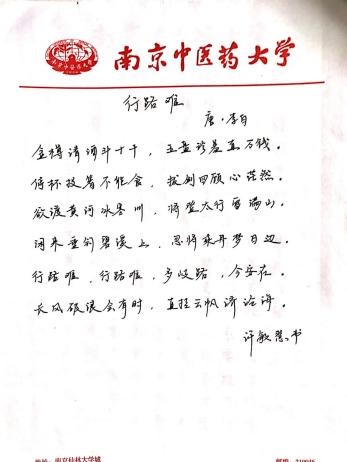 南京中医药大学
行路难
唐·李白
金樽清酒斗十千，玉盘珍羞直万钱。
停杯投箸不能食，拔剑四顾心茫然。
欲渡黄河冰塞川，将登太行雪满山。
闲来垂钓碧溪上，忽复乘舟梦日边。
行路难，行路难，多岐路，今安在。
长风破浪会有时，直挂云帆济沧海。
许敏慧 书
南京仙林大学城 210046